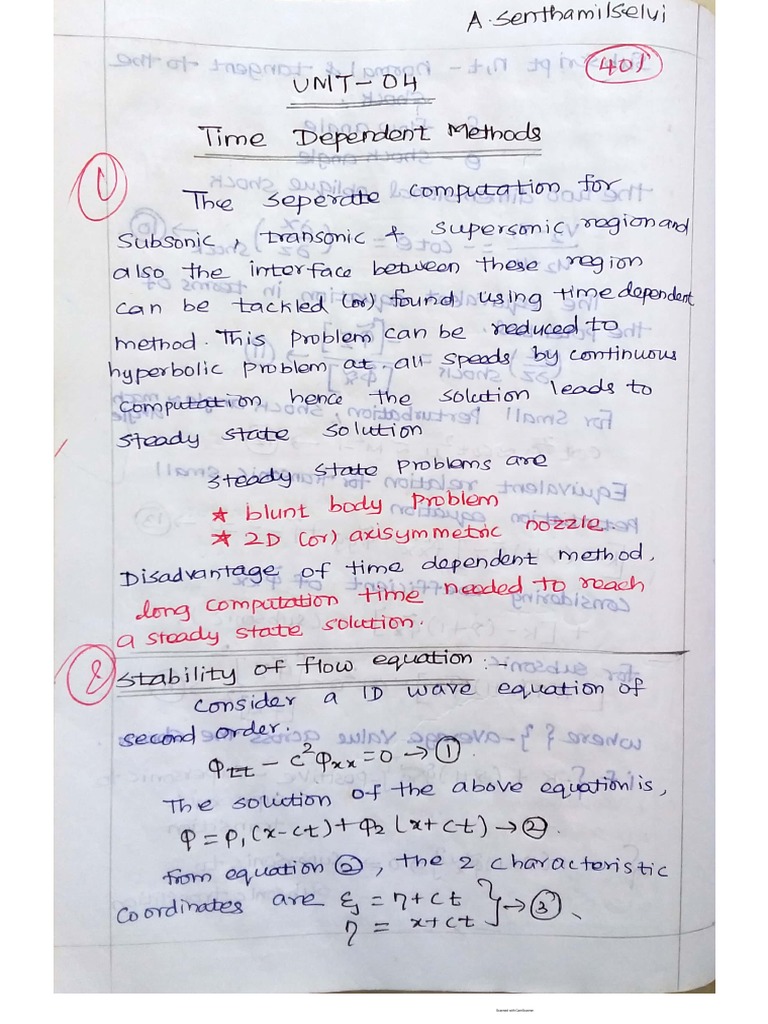 A. Senthamilselvi
401
UNIT-04
Time Dependent Methods
1
The seperate computation for
subsonic, transonic & supersonic region and
also the interface between these region
can be tackled (or) found using time dependent
method. This problem can be reduced to
hyperbolic problem at all speeds by continuous
computation hence the solution leads to
steady state solution
steady state problems are
* blunt body problem
* 2D (or) axisymmetric nozzle.
Disadvantage of time dependent method.
long computation time needed to reach
a steady state solution.
2
Stability of flow equation :-
Consider a 1D wave equation of
second order.
φtt - c²φxx = 0 → ①
The solution of the above equation is,
φ = φ₁(x-ct) + φ₂(x+ct) → ②.
from equation ②, the 2 characteristic
coordinates are ξ = η+ct
η = x+ct } → ③
Scanned with CamScanner